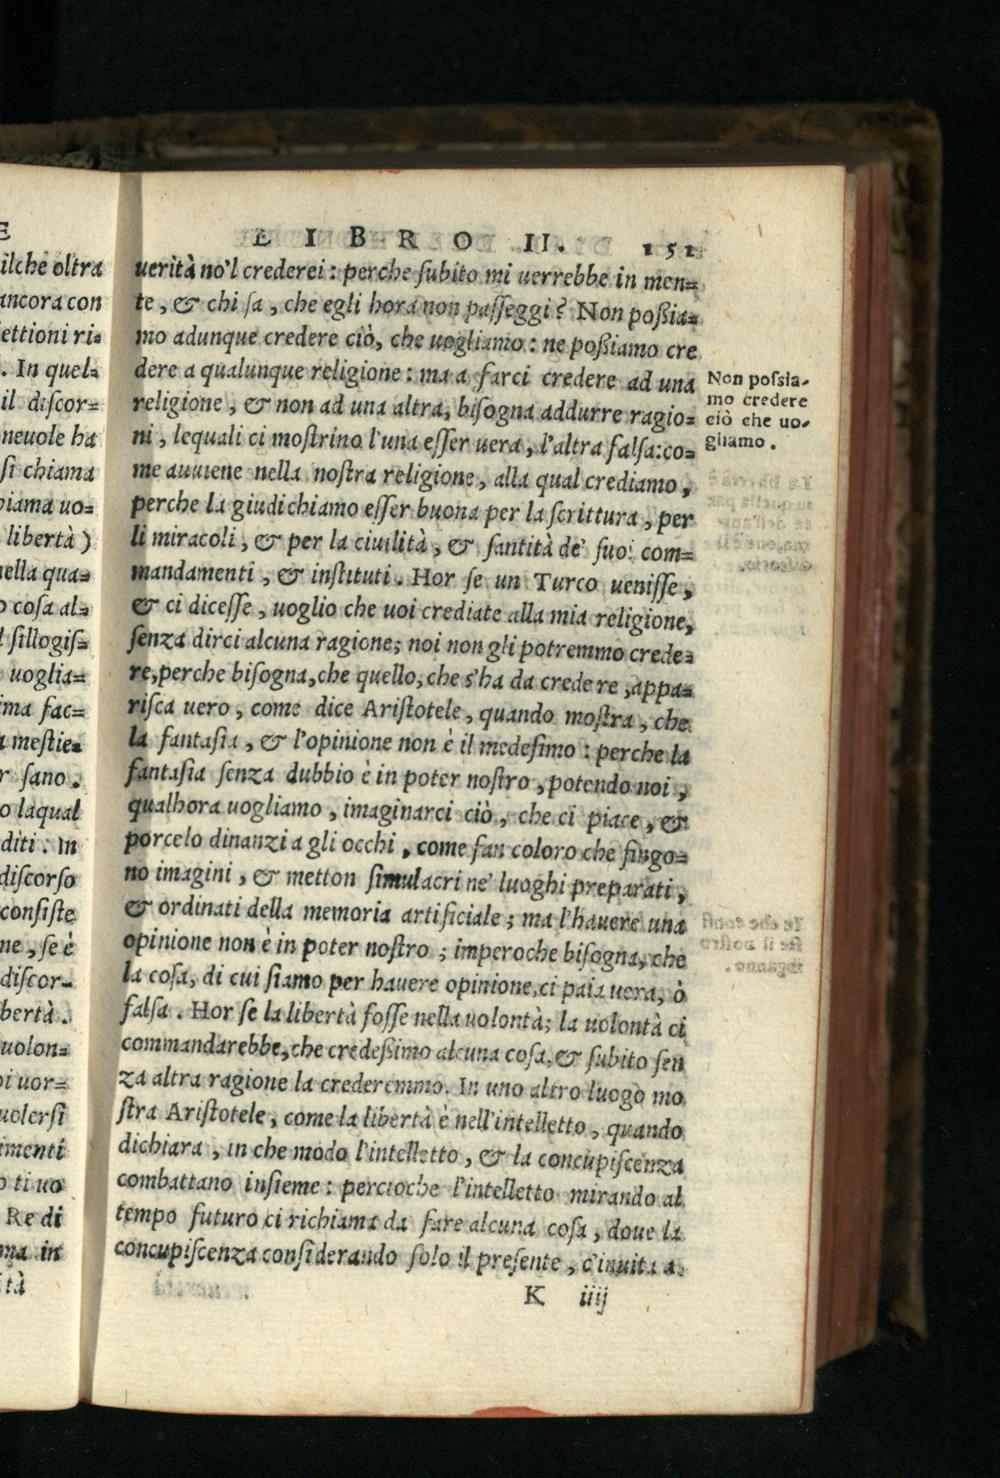 E
ilche oltra
ancora con
ettioni ri=
. In quel=
il diſcor=
neuole ha
ſi chiama
biama uo=
libertà)
nella qua=
o coſa al=
l ſillogiſ=
uoglia=
ima fac=
a meſtie=
r ſano.
o laqual
diti. In
diſcorſo
conſiſte
ne, ſe è
diſcor-
bertà.
uolon=
oi uor=
uolerſi
imenti
o ti uo
Re di
ma in
ità
LIBRO II. 151
uerità no'l crederei: perche ſubito mi uerrebbe in men=
te, & chi ſa, che egli hora non paſſeggi? Non poßia=
mo adunque credere ciò, che uogliamo: ne poßiamo cre
dere a qualunque religione: ma a farci credere ad una
religione, & non ad una altra, biſogna addurre ragio=
ni, lequali ci moſtrino l'una eſſer uera, l'altra falſa: co=
me auuiene nella noſtra religione, alla qual crediamo,
perche la giudichiamo eſſer buona per la ſcrittura, per
li miracoli, & per la ciuilità, & ſantità de' ſuoi com=
mandamenti, & inſtituti. Hor ſe un Turco ueniſſe,
& ci diceſſe, uoglio che uoi crediate alla mia religione,
ſenza dirci alcuna ragione; noi non gli potremmo crede=
re, perche biſogna, che quello, che s'ha da credere, appa=
riſca uero, come dice Ariſtotele, quando moſtra, che
la fantaſia, & l'opinione non è il medeſimo: perche la
fantaſia ſenza dubbio è in poter noſtro, potendo noi,
qualhora uogliamo, imaginarci ciò, che ci piace, &
porcelo dinanzi a gli occhi, come fan coloro che fingo=
no imagini, & metton ſimulacri ne' luoghi preparati,
& ordinati della memoria artificiale; ma l'hauere una
opinione non è in poter noſtro; imperoche biſogna, che
la coſa, di cui ſiamo per hauere opinione, ci paia uera, ò
falſa. Hor ſe la libertà foſſe nella uolontà; la uolontà ci
commandarebbe, che credeßimo alcuna coſa, & ſubito ſen
za altra ragione la crederemmo. In uno altro luogo mo
ſtra Ariſtotele, come la libertà è nell'intelletto, quando
dichiara, in che modo l'intelletto, & la concupiſcenza
combattano inſieme: percioche l'intelletto mirando al
tempo futuro ci richiama da fare alcuna coſa, doue la
concupiſcenza conſiderando ſolo il preſente, c'inuita a
K iiij
Non poſsia-
mo credere
ciò che uo-
gliamo.